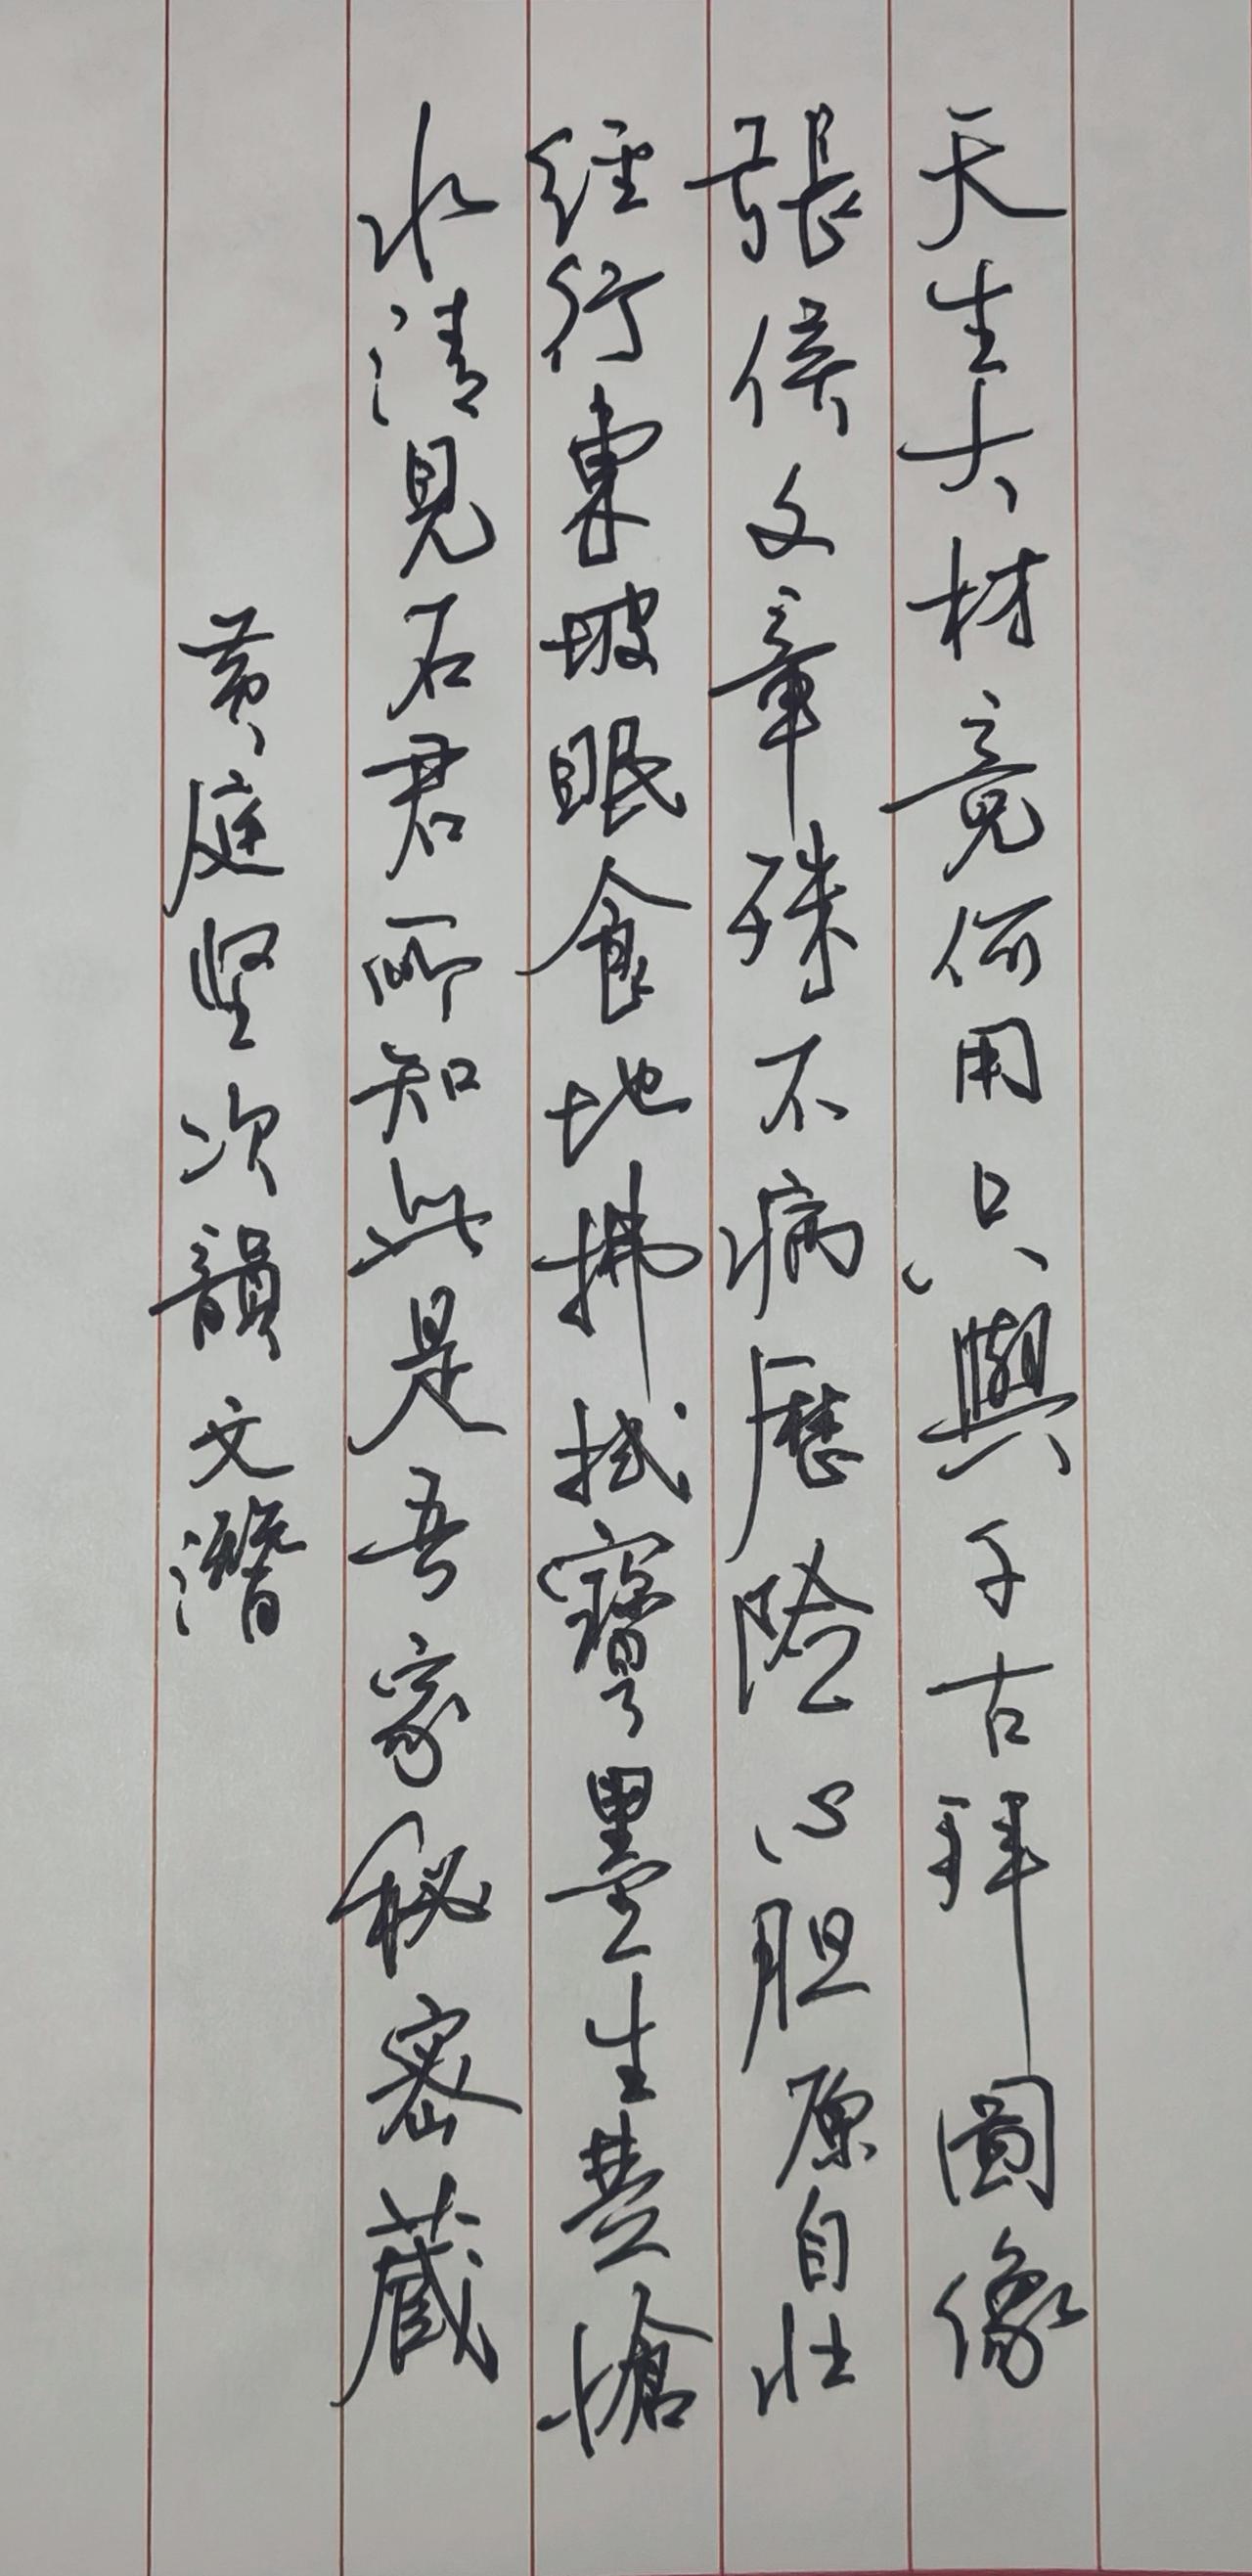 天生大材竟何用只與千古拜圖像
張侯文章殊不病歷險心胆原自壯
經行東坡眠食地拂拭寶墨生楚愴
水清見石君所知此是吾家秘密藏
黄庭坚次韻文潛